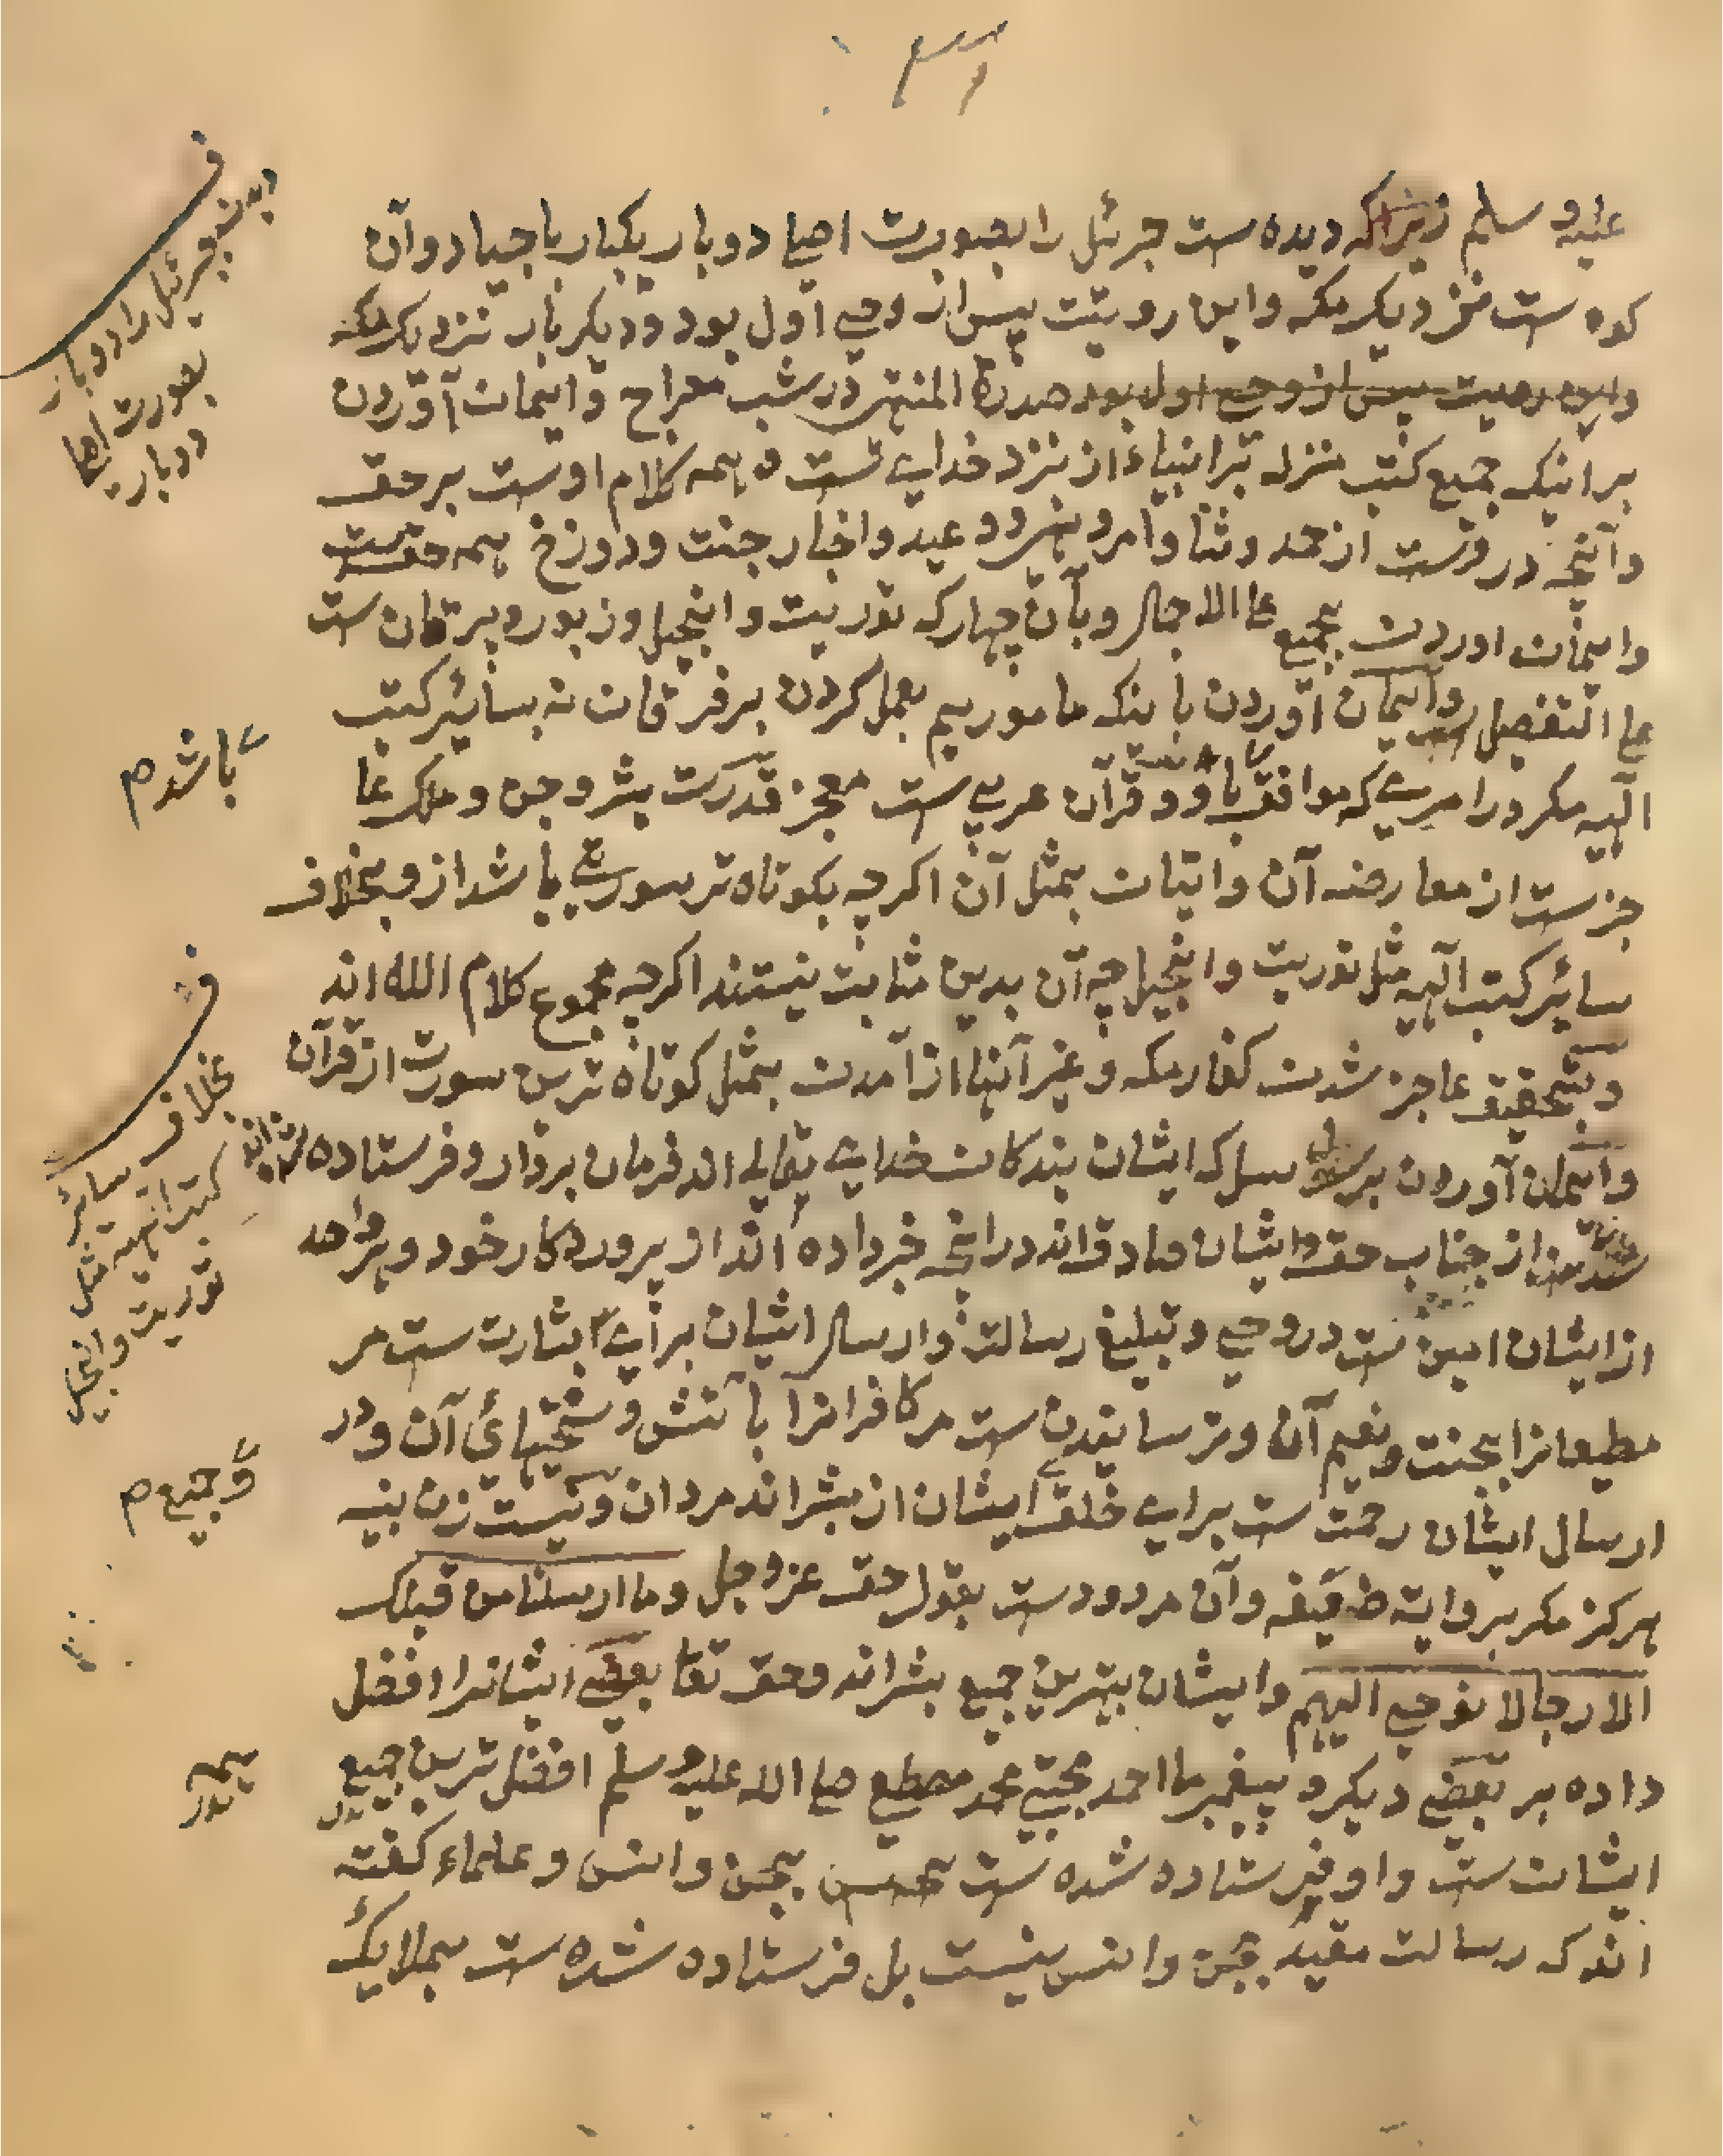 علیه و سلم زیراکه دیده ست جبرئیل را بصورت اصلی دوبار یکبار باجیاد و آن
کوه ست نزدیک مکه و این رویت پس از وحی اول بود و دیکر بار نزدیک
المنتهی در شب معراج و ایمان آوردن
براینکه جمیع کتب منزله بر انبیاء از نزد خدای ست و همه کلام اوست برحق
و آنچه دروست از حمد و ثنا و امر و نهی و وعید و اخبار جنت و دوزخ همه حق ست
و ایمان اوردن بجمیع علی الاجمال و بآن چهار که توریت و انجیل و زبور و فرقان ست
علی التفصیل و ایمان آوردن باینکه ماموریم بعمل کردن بر فرقان نه بسائر کتب
الهیه مکر در امری که موافق باو و قرآن عربی ست معجز قدرت بشر و جن و ملک عا
جز ست از معارضه آن و اتیان بمثل آن اکرچه بکوتاه تر سورتی باشد ازو بخلاف
سائر کتب الهیه مثل توریت و انجیل چه آن بدین مثابت نیستند اکرچه مجموع کلام الله اند
و بتحقیق عاجز شدن کفار مکه و غیر آنها از آمدن بمثل کوتاه ترین سورت از قرآن
و ایمان آوردن برسل که ایشان بندکان خدای تعالی اند فرمان بردار و فرستاده
از جناب حق و ایشان صادق اند درانچه خبر داده اند از پروردکار خود و هر واحد
از ایشان امین ست در وحی و تبلیغ رسالت و ارسال ایشان برای بشارت ست مر
مطیعانرا بجنت و نعیم آن و ترسانیدن ست مر کافرانرا بآتش و سختیهائ آن و در
ارسال ایشان رحمت ست برای خلق ایشان از بشر اند مردان و نیست زن نبیه
هرکز مکر بروایة ضعیفه و آن مردود ست بقول حق عز و جل وما ارسلنا من قبلک
الا رجالا نوحی الیهم و ایشان بهترین جمیع بشر اند و حق تعا بعضی ایشانرا افضل
داده بر بعضی دیکر و پیغمبر ما احمد مجتبی محمد مصطفی صلی الله علیه و سلم افضل ترین جمیع
ایشان ست و او فرستاده شده ست بجن و انس و علماء کفته
اند که رسالت مقید بجن و انس نیست بل فرستاده شده ست بملایک
ف
دیدن جبرئیل را دوبار
بصورت اصلی
دوبار
باشد م
ف
بخلاف سائر
کتب الهیه مثل
توریت و انجیل
و جمیع م
همه